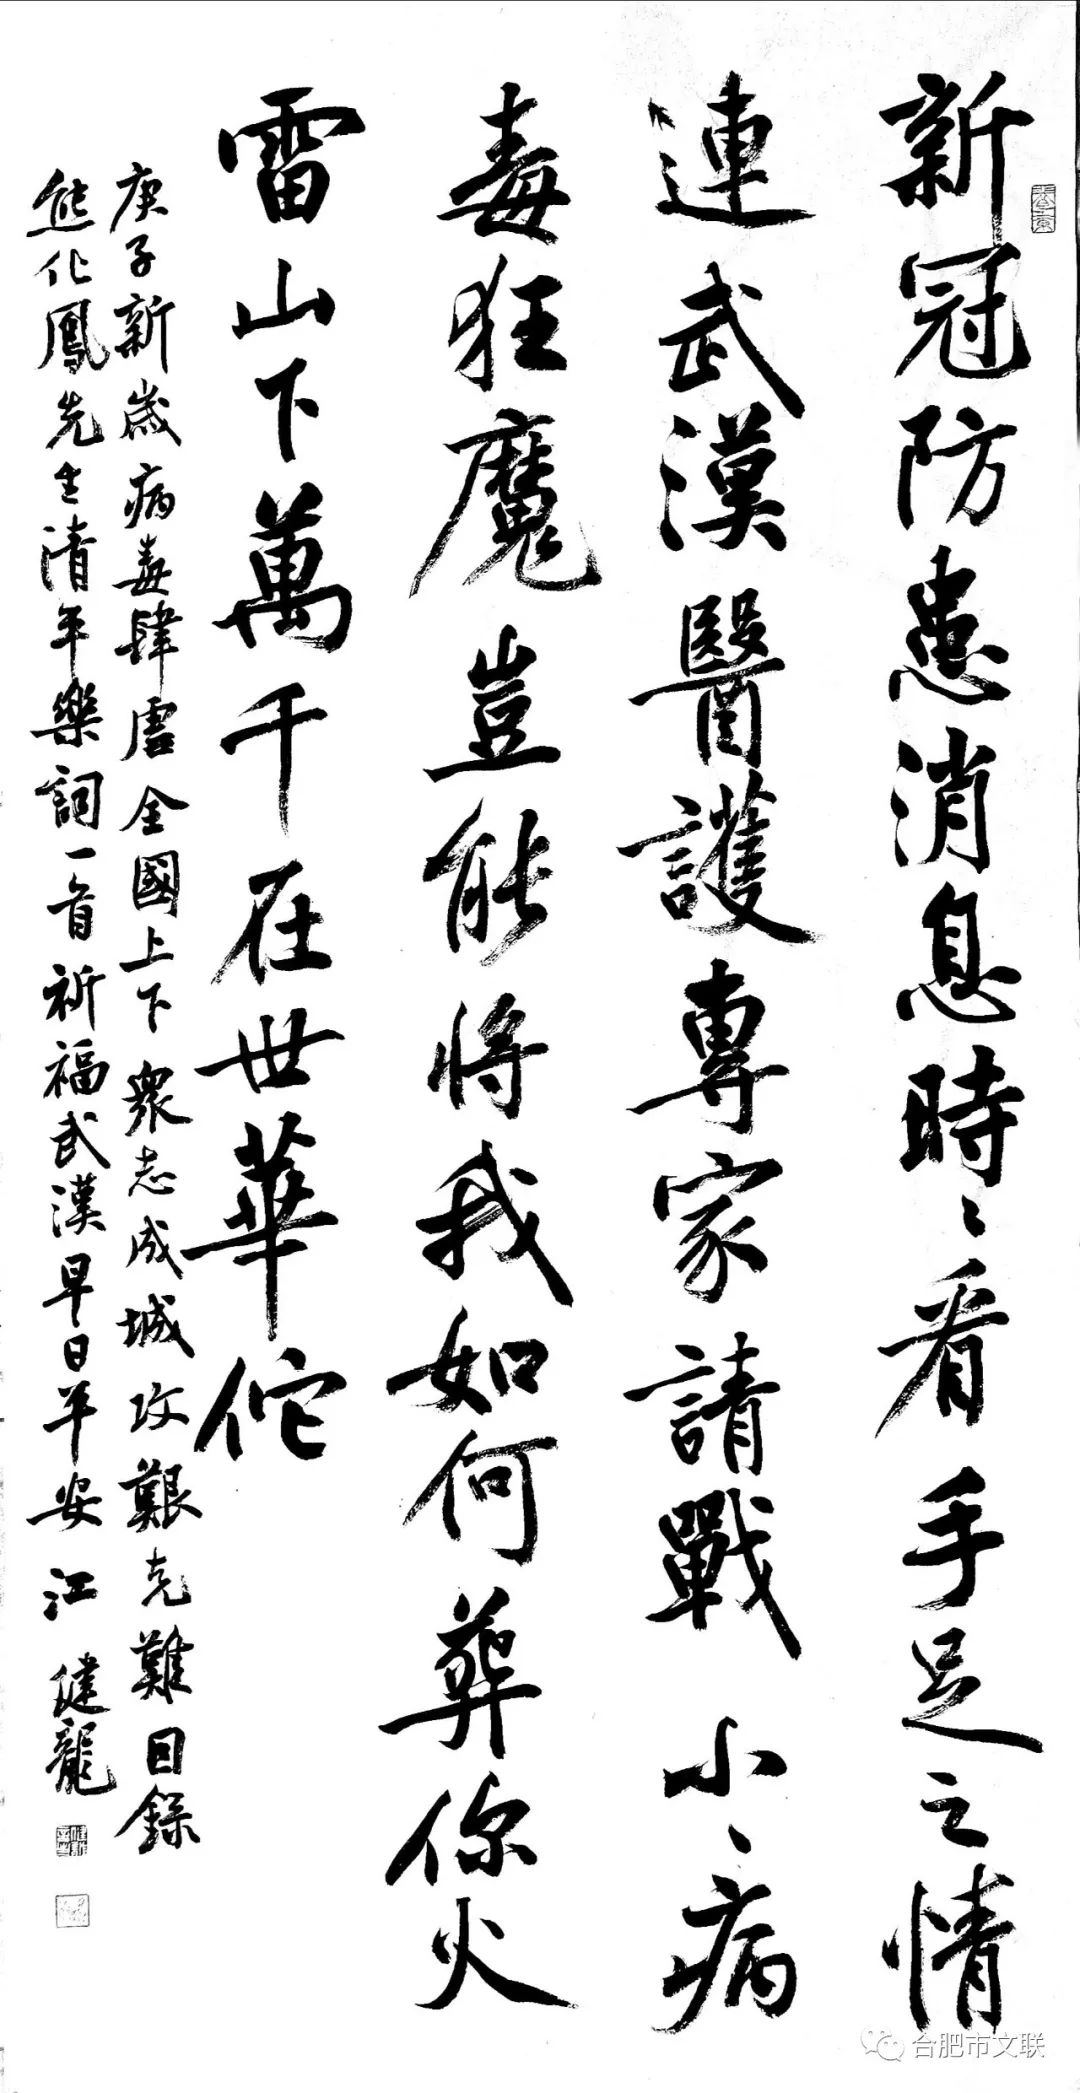 新冠防患消息時〻看手足之情
連武漢醫護專家請戰小〻病
毒狂魔豈能將我如何葬你火
雷山下萬千在世華佗
庚子新歲病毒肆虐全國上下眾志成城攻艱克難因錄
熊化鳳先生清平樂詞一首祈福武漢早日平安江健龍
合肥市文联